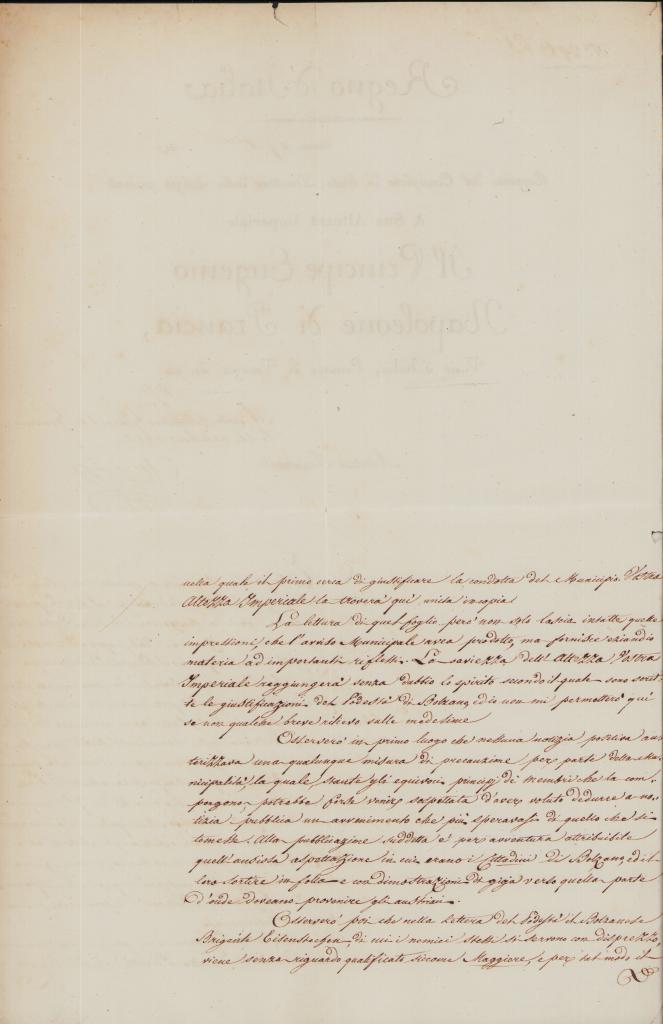 nella quale il primo cerca di giustificare la condotta del Municipio. Vostra
Altezza Imperiale la troverà qui unita in copia.
La lettura di quel foglio però non solo lascia intatte quelle
impressioni che l'avviso Municipale avea prodotte, ma fornisce eziandio
materia ad importanti riflessi. La saviezza dell'Altezza Vostra
Imperiale raggiungerà senza dubbio lo spirito secondo il quale sono scrit-
te le giustificazioni del Podestà di Bolzano, ed io non mi permetterò qui
se non qualche breve rilievo sulle medesime
Osserverò in primo luogo che nessuna notizia positiva au-
torizzava una qualunque misura di precauzione per parte della Mu-
nicipalità, la quale, stante gli equivoci principj di membri che la com-
pongono potrebbe forse venir sospettata d'aver voluto dedurre a no-
tizia pubblica un avvenimento che più speravasi di quello che si
temesse. Alla pubblicazione suddetta è per avventura attribuibile
quell'ansiosa aspettazione in cui erano i Cittadini di Bolzano, ed il
loro sortire in folla e con dimostrazioni di gioja verso quella parte
d'onde doveano provenire gli austriaci.
Osserverò poi che nella lettera del Podestà il Bolzanese
Brigante Eisenstecken, di cui i nemici stessi si servono con disprezzo,
viene senza riguardo qualificato siccome Maggiore, e per tal modo il